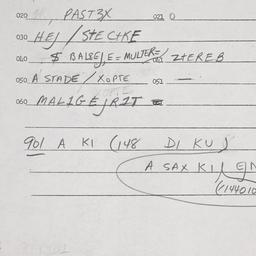 020 PAST3X 021 0
030 HEJ / STECTKE
040 $ BALSEJ,E=MULTERE/ 041 ZTEREB
050 A STADE / KOPTE 051 —
060 MALIGEJRIT
901 A KI (148 DI KU)
A SAX KI / EJN
(144010